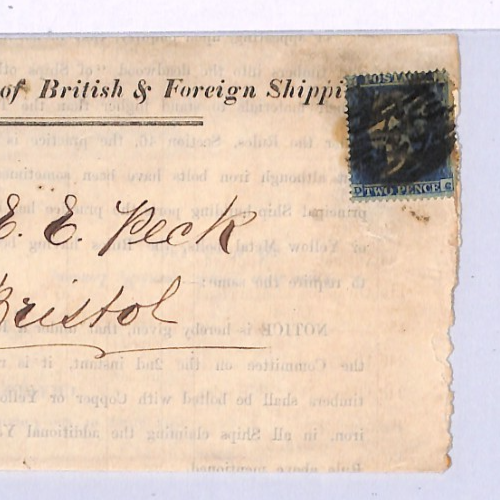 of British & Foreign Shippi
POSTAGE
D TWO PENCE G
E. E. Peck
Bristol
into the deadwood "of Ships
the Rules, Section 46, the practice is
although iron bolts have been sometimes
principal Ship-building port the practice
or Yellow Metal bolts, the Rules having
to require the same:—
NOTICE is hereby given, that under
the Committee on the 2nd instant, it is
timbers shall be bolted with Copper or
iron, in all Ships claiming the additional
Rule above mentioned.